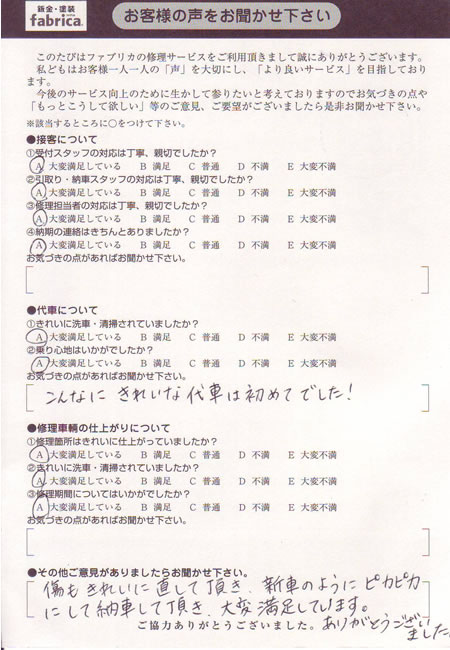 鈑金・塗装
fabrica.
お客様の声をお聞かせ下さい
このたびはファブリカの修理サービスをご利用頂きまして誠にありがとうございます。
私どもはお客様一人一人の「声」を大切にし、「より良いサービス」を目指しております。
今後のサービス向上のために生かして参りたいと考えておりますのでお気づきの点や
「もっとこうして欲しい」等のご意見、ご要望がございましたら是非お聞かせ下さい。
※該当するところに○をつけて下さい。
●接客について
①受付スタッフの対応は丁寧、親切でしたか？
A 大変満足している B 満足 C 普通 D 不満 E 大変不満
②引取り・納車スタッフの対応は丁寧、親切でしたか？
A 大変満足している B 満足 C 普通 D 不満 E 大変不満
③修理担当者の対応は丁寧、親切でしたか？
A 大変満足している B 満足 C 普通 D 不満 E 大変不満
④納期の連絡はきちんとありましたか？
A 大変満足している B 満足 C 普通 D 不満 E 大変不満
お気づきの点があればお聞かせ下さい。
●代車について
①きれいに洗車・清掃されていましたか？
A 大変満足している B 満足 C 普通 D 不満 E 大変不満
②乗り心地はいかがでしたか？
A 大変満足している B 満足 C 普通 D 不満 E 大変不満
お気づきの点があればお聞かせ下さい。
こんなに きれいな代車は初めてでした!
●修理車輌の仕上がりについて
①修理箇所はきれいに仕上がっていましたか？
A 大変満足している B 満足 C 普通 D 不満 E 大変不満
②きれいに洗車・清掃されていましたか？
A 大変満足している B 満足 C 普通 D 不満 E 大変不満
③修理期間についてはいかがでしたか？
A 大変満足している B 満足 C 普通 D 不満 E 大変不満
お気づきの点があればお聞かせ下さい。
●その他ご意見がありましたらお聞かせ下さい。
傷もきれいに直して頂き、新車のようにピカピカ
にして納車して頂き、大変満足しています。
ご協力ありがとうございました。
ありがとうござい
ました。